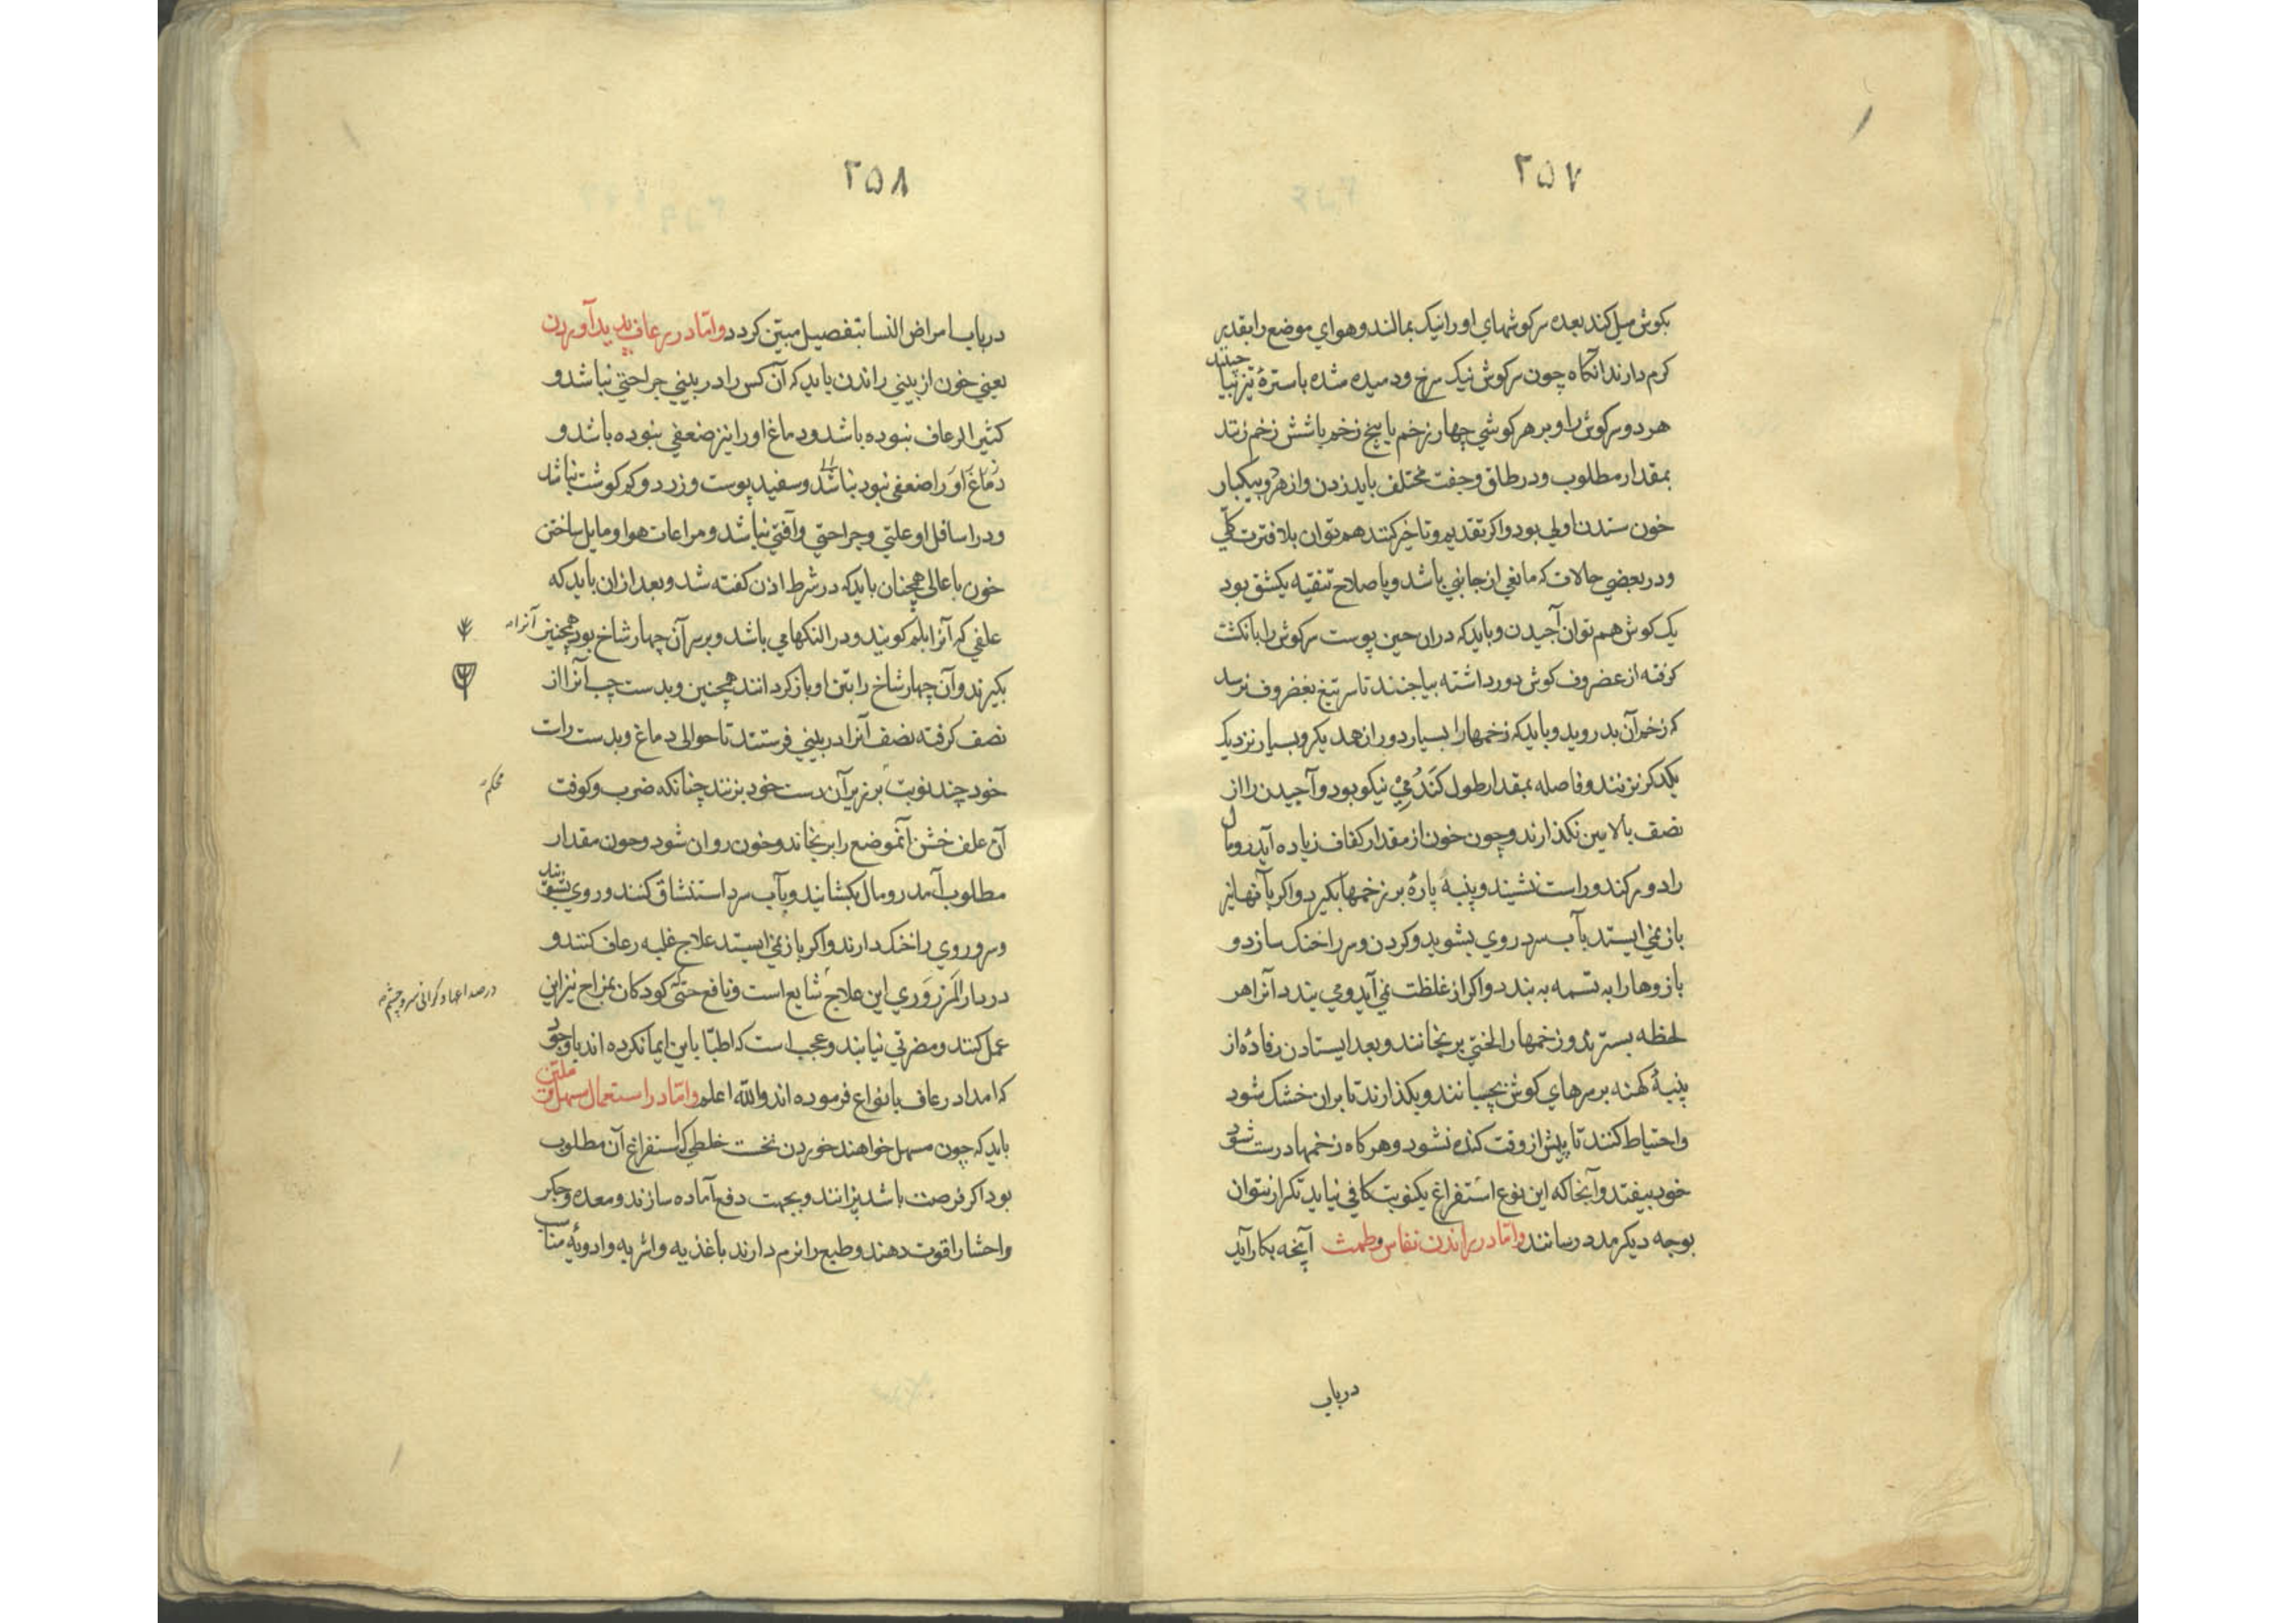 ۲۵۷
بکوش میل کند بعده سرکوشهای او را نیک بمالند و هوای موضع را بقدیر
کرم دارند آنکاه چون سرکوش نیک سرخ و دمیده شده باسترهٔ تیز بیا جنند
هر دو سرکوش را و بر هر کوشی چهار زخم یا پنج زخم یا شش زخم زنند
بمقدار مطلوب و در طاق و جفت مختلف باید زدن و از هر دو بیکبار
خون ستدن اولی بود و اکر تقدیم و تاخیر کنند هم توان بلا فترت کلّی
و در بعضی حالات که مانعی از جانبی باشد و یا صلاح تنقیه یکشق بود
یک کوش هم توان آجیدن و باید که دران حین پوست سرکوش را بانکشت
کرفته از غضروف کوش دور داشته بیاجنند تا سر تیغ بغضروف نرسد
که زخم آن بد روید و باید که زخمها را بسیار دور از همدیکر و بسیار نزدیک
یکدکر نزنند و فاصله بمقدار طول کَندُمی نیکو بود و آجیدن را از
نصف بالا یین نکذارند و چون خون از مقدار کفاف زیاده آید رومال
را دور کند و راست نشیند و پنبه پارهٔ بر زخمها بکیرد و اکر بآنها نیز
باز نمی ایستد بآب سرد روی بشوید و کردن و سر را خنک سازد و
بازوها را به تسمه به بندد و اکر از غلظت نمی آید و می بندد آنرا هر
لحظه بسترند و زخمها را لختی برنجانند و بعد ایستادن رفادهٔ از
پنبهٔ کهنه بر سرهای کوش بچسپانند و بکذارند تا بران خشک شود
و احتیاط کنند تا پیش از وقت کنده نشود و هر کاه زخمها درست شود
خود بیفتد و آنجا که این نوع استفراغ یکنوبت کافی نیاید تکرار نتوان
بوجه دیکر مدد رسانند و امّا در راندن نفاس و طمث آنچه بکار آید
در باب
۲۵۸
در باب امراض النسا بتفصیل مبیّن کردد و امّا در رعاف پدید آوردن
یعنی خون از بینی راندن باید که آن کس را در بینی جراحتی نباشد و
کثیر الرعاف نبوده باشد و دماغ او را نیز ضعفی نبوده باشد و
دماغ او را ضعفی نبود نباشد و سفید پوست و زرد و کم کوشت نباشد
و در اسافل او علتی و جراحتی و آفتی نباشد و مراعات هوا و مایل ساختن
خون باعالی همچنان باید که در شرط اذن کفته شد و بعد ازان باید که
علفی که آنرا بلم کویند و در النکها می باشد و بر سر آن چهار شاخ بود همچنین آنرا
بکیرند و آن چهار شاخ را بتن او باز کردانند همچنین و بدست چپ آنرا از
نصف کرفته نصف آنرا در بینی فرستند تا حوالی دماغ و بدست راست
خود چند نوبت بر زیر آن دست خود بزنند چنانکه ضرب و کوفت
محکم
آن علف خشن آنموضع را برنجاند و خون روان شود و چون مقدار
مطلوب آمد رومال بکشانید و بآب سرد استنشاق کنند و روی بشویند
و سر و روی را خنک دارند و اکر باز نمی ایستد علاج غلبه رعاف کنند و
در دار المرز و ری این علاج شایع است و نافع حتی کودکان بمزاح نیز این
در صداعها و کرانی سر و چشم
عمل کنند و مضرتی نیابند و عجب است که اطبّا باین ایما نکرده اند با وجود
که امداد رعاف بانواع فرموده اند والله اعلم و امّا در استعمال مسهل و ملیّن
باید که چون مسهل خواهند خوردن نخست خلطی که استفراغ آن مطلوب
بود اکر فرصت باشد بپزانند و بجهت دفع آماده سازند و معده و جکر
و احشا را قوت دهند و طبع را نرم دارند باغذیه و اشربه و ادویهٔ مناسب